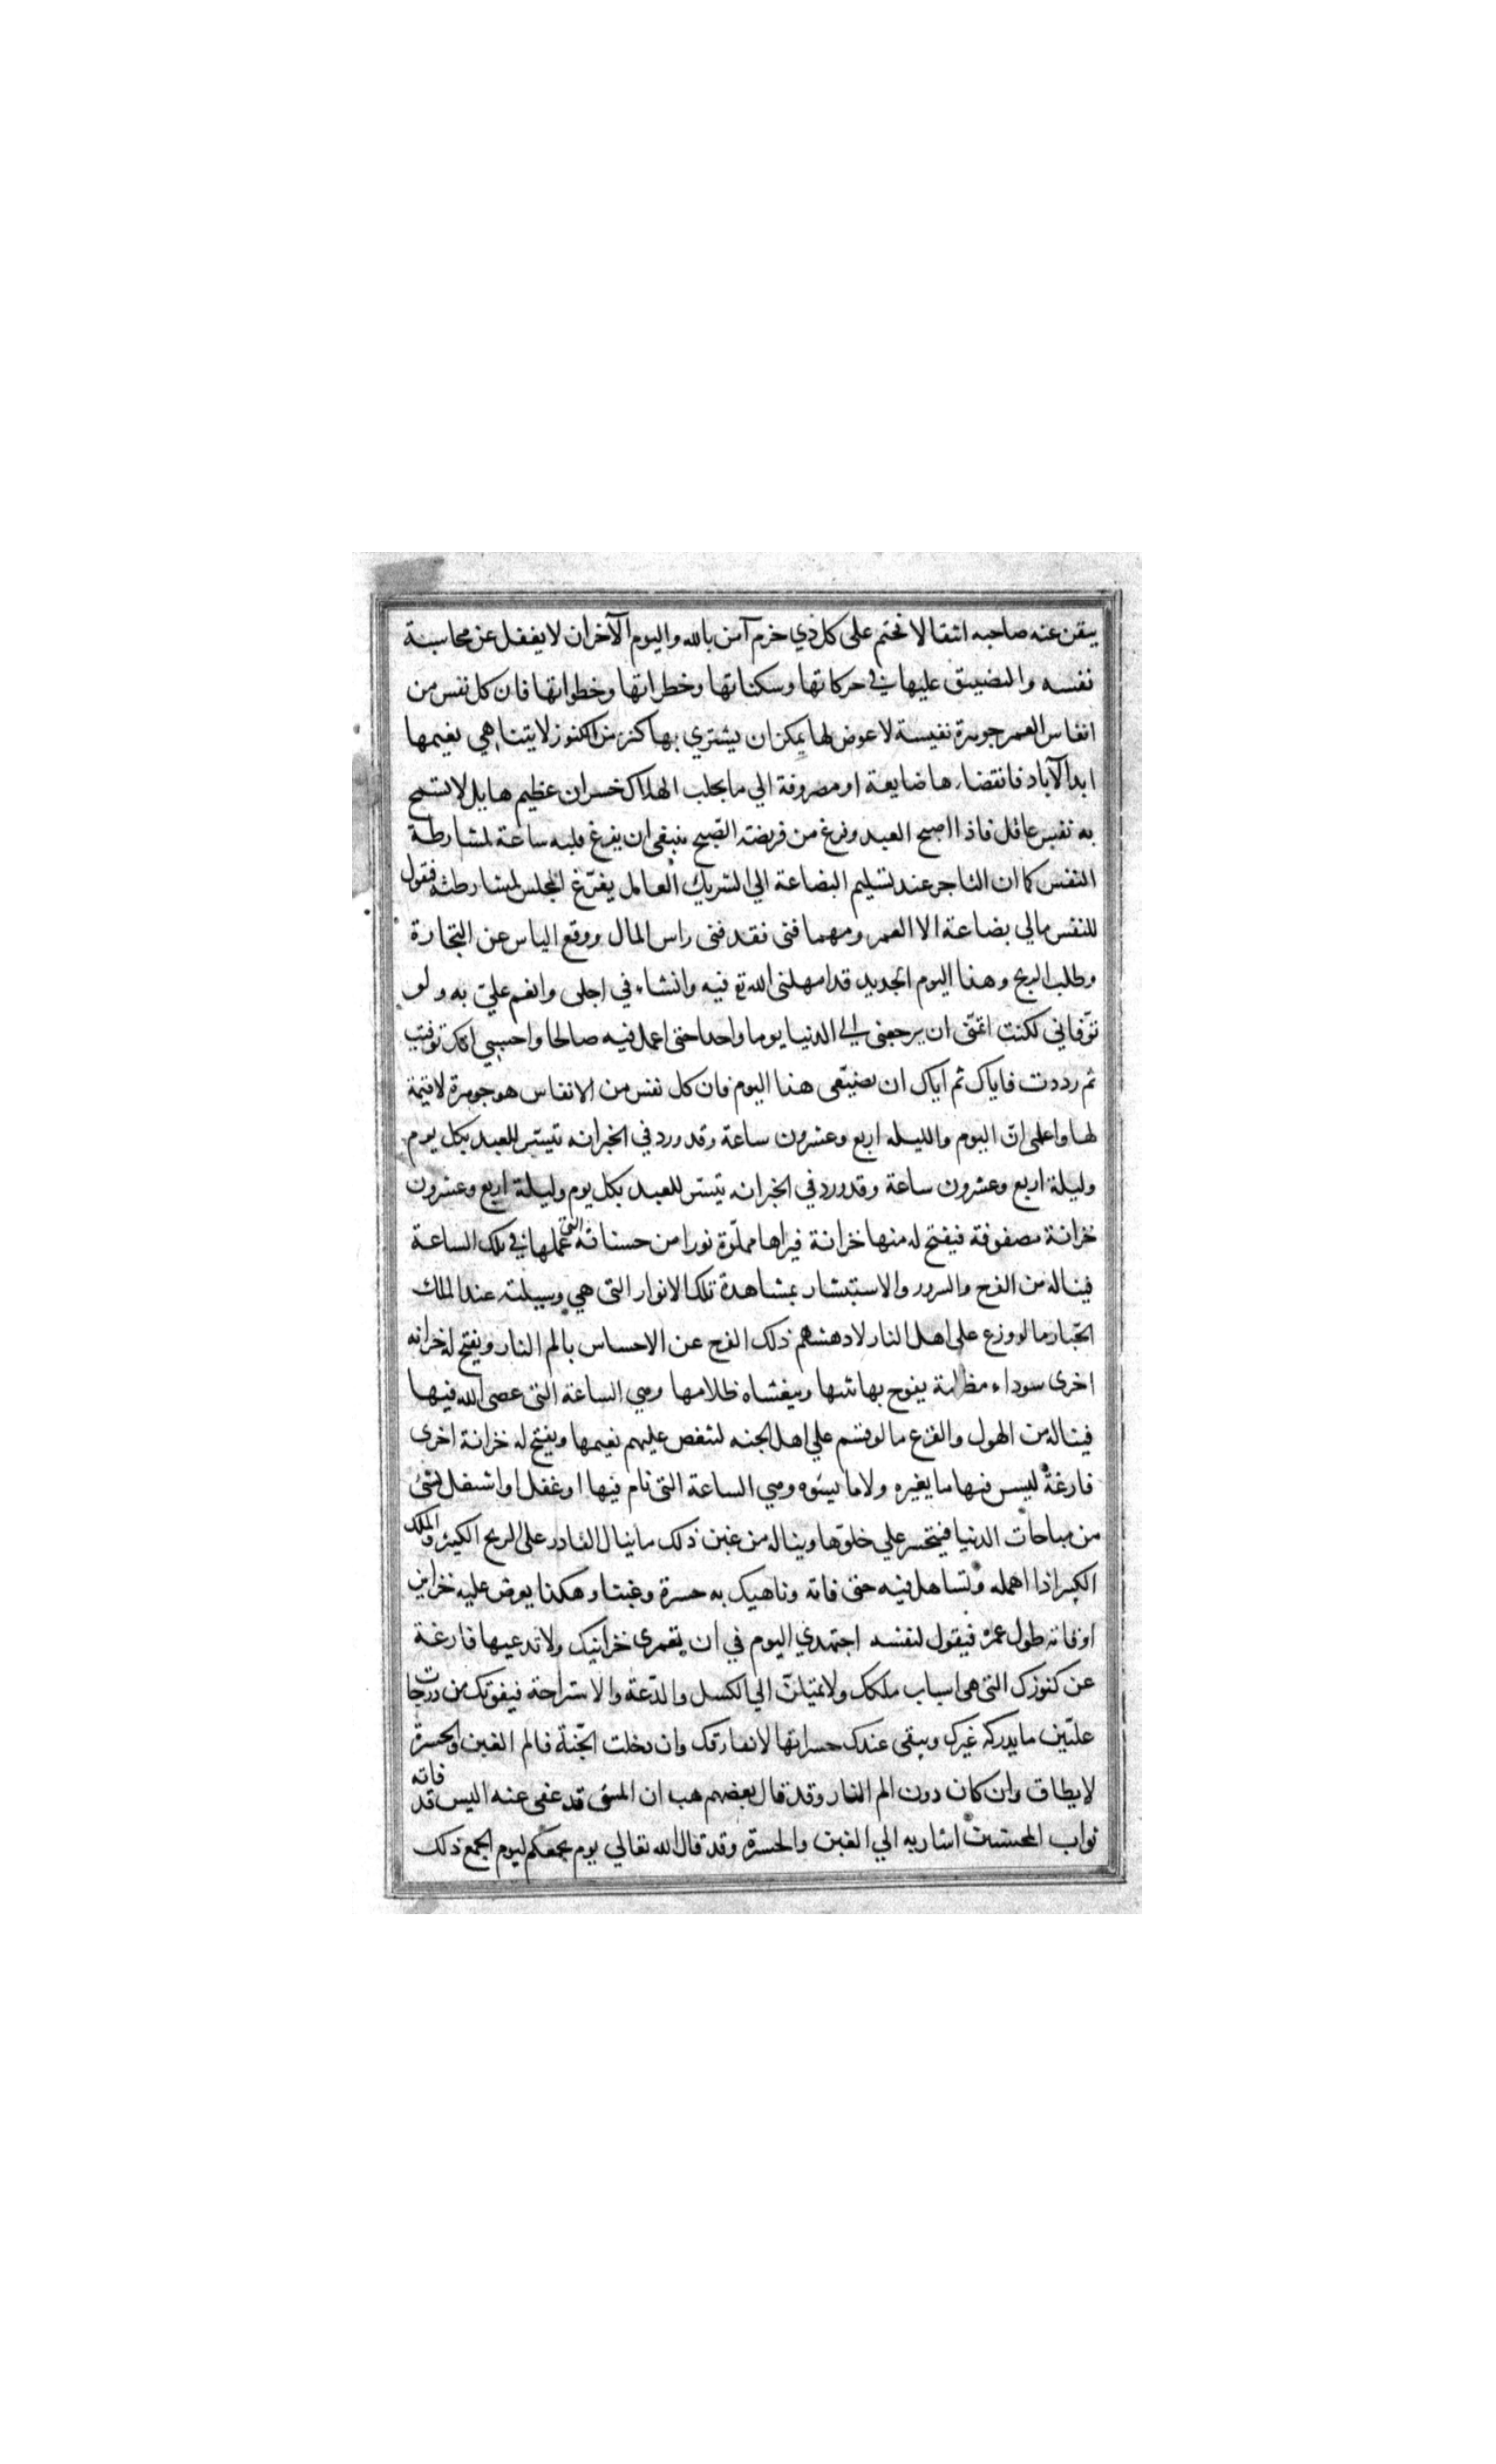 يبقى عنه صاحبه انتقالا فحتم على كل ذي حزم آمن بالله واليوم الآخر ان لا يغفل عن محاسبة
نفسه والتضييق عليها في حركاتها وسكناتها وخطراتها وخطواتها فان كل نفس من
انفاس العمر جوهرة نفيسة لا عوض لها يمكن ان يشتري بها كنز من الكنوز لا يتناهي نعيمها
ابد الآباد فانقضاءها ضايعة او مصروفة الي ما يجلب الهلاك خسران عظيم هايل لا تسمح
به نفس عاقل فاذا اصبح العبد وفرغ من فريضة الصبح ينبغي ان يفرغ قلبه ساعة لمشارطة
النفس كما ان التاجر عند تسليم البضاعة الي الشريك العامل يفرّغ المجلس لمشارطته فيقول
للنفس مالي بضاعة الا العمر ومهما فنى نقد فنى راس المال ووقع الياس عن التجارة
وطلب الربح وهذا اليوم الجديد قد امهلني الله تع فيه وانشاء في اجلى وانعم عليّ به ولو
توّفاني لكنت اتمنّى ان يرجعنى الى الدنيا يوما واحدا حتى اعمل فيه صالحا واحسبي انك توفيت
ثم رددت فاياك ثم اياك ان تضيّعى هذا اليوم فان كل نفس من الانفاس هو جوهرة لا قيمة
لها واعلمى انّ اليوم والليله اربع وعشرون ساعة وقد ورد في الخبر انه تيستر للعبد بكل يوم
وليلة اربع وعشرون ساعة وقد ورد في الخبر انه تيستر للعبد بكل يوم وليلة اربع وعشرون
خزانة مصفوفة فيفتح له منها خزانة فيراها مملوّة نورا من حسناته التي عملها في تلك الساعة
فيناله من الفرح والسرور والاستبشار بمشاهدة تلك الانوار التى هي وسيلته عند الملك
الجبّار ما لو وزع على اهل النار لادهشهم ذلك الفرح عن الاحساس بالم النار ويفتح له خزانه
اخرى سوداء مظلمة يفوح بها نتنها ويغشاه ظلامها وهي الساعة التى عصى الله فيها
فيناله من الهول والفزع ما لو قسم علي اهل الجنه لنغص عليهم نعيمها ويفتح له خزانة اخرى
فارغة ليس فيها ما يغيره ولا ما يسّوه وهي الساعة التى نام فيها او غفل او اشتغل بشئ
من مباحات الدنيا فيتحسر علي خلوّها ويناله من غبن ذلك ما ينال القادر على الربح الكثير والملك
الكبير اذا اهمله وتساهل فيه حتى فاته وناهيك به حسرة وغبنا وهكذا يعرض عليه خزاين
اوقاته طول عمره فيقول لنفسه اجتهدي اليوم في ان تعمرى خزانيك ولا تدعيها فارغة
عن كنوزك التى هى اسباب ملكك ولا تميلنّ الي الكسل والدّعة والاستراحة فيفوتك من درجات
علّيين ما يدركه غيرك ويبقى عندك حسراتها لا تفارقك وان دخلت الجّنة فالم الغبن والحسرة
لا يطاق وان كان دون الم النار وقد قال بعضهم هب ان المسئ قد عفى عنه اليس قد فاته
ثواب المحسنين اشار به الي الغبن والحسرة وقد قال الله تعالي يوم يجمعكم ليوم الجمع ذلك